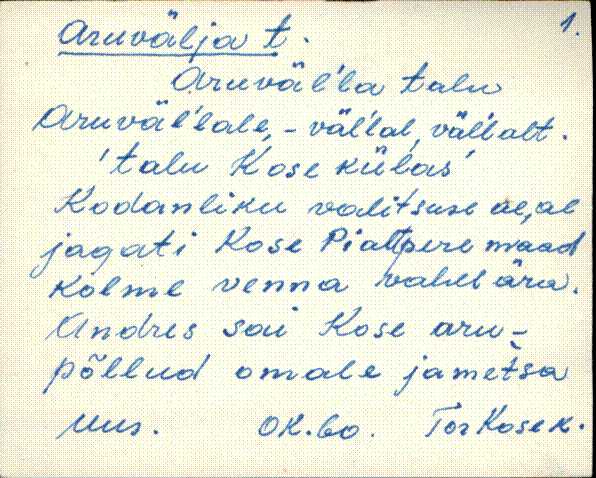 1.
Aruvälja t.
Aruväl'la talu
Aruväl'lale, - väl'lal, väl'lalt.
'talu Kose külas'
Kodanliku valitsuse ae,al
jagati Kose Piatlpere maad
kolme venna vahel ära.
Andres sai Kose aru-
põllud omale jametsa
Uus. OK.60. Tor Kose k.